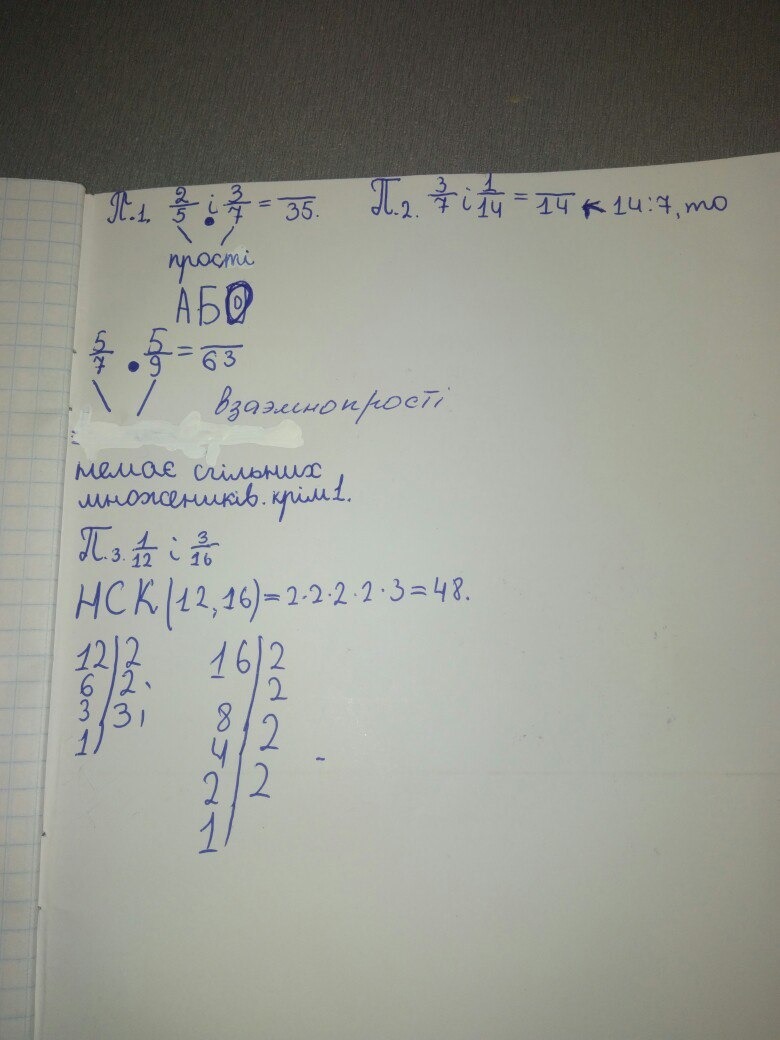 П.1. 2/5 і 3/7 = —/35.
П.2. 3/7 і 1/14 = —/14 ← 14:7, то
прості
АБО
5/7 • 5/9 = —/63
взаэмнопрості
немає спільних
множеників. крім 1.
П.3. 1/12 і 3/16
НСК(12,16)=2·2·2·2·3=48.
12|2
6|2
3|3
1|
16|2
|2
8|
4|2
2|2
1|